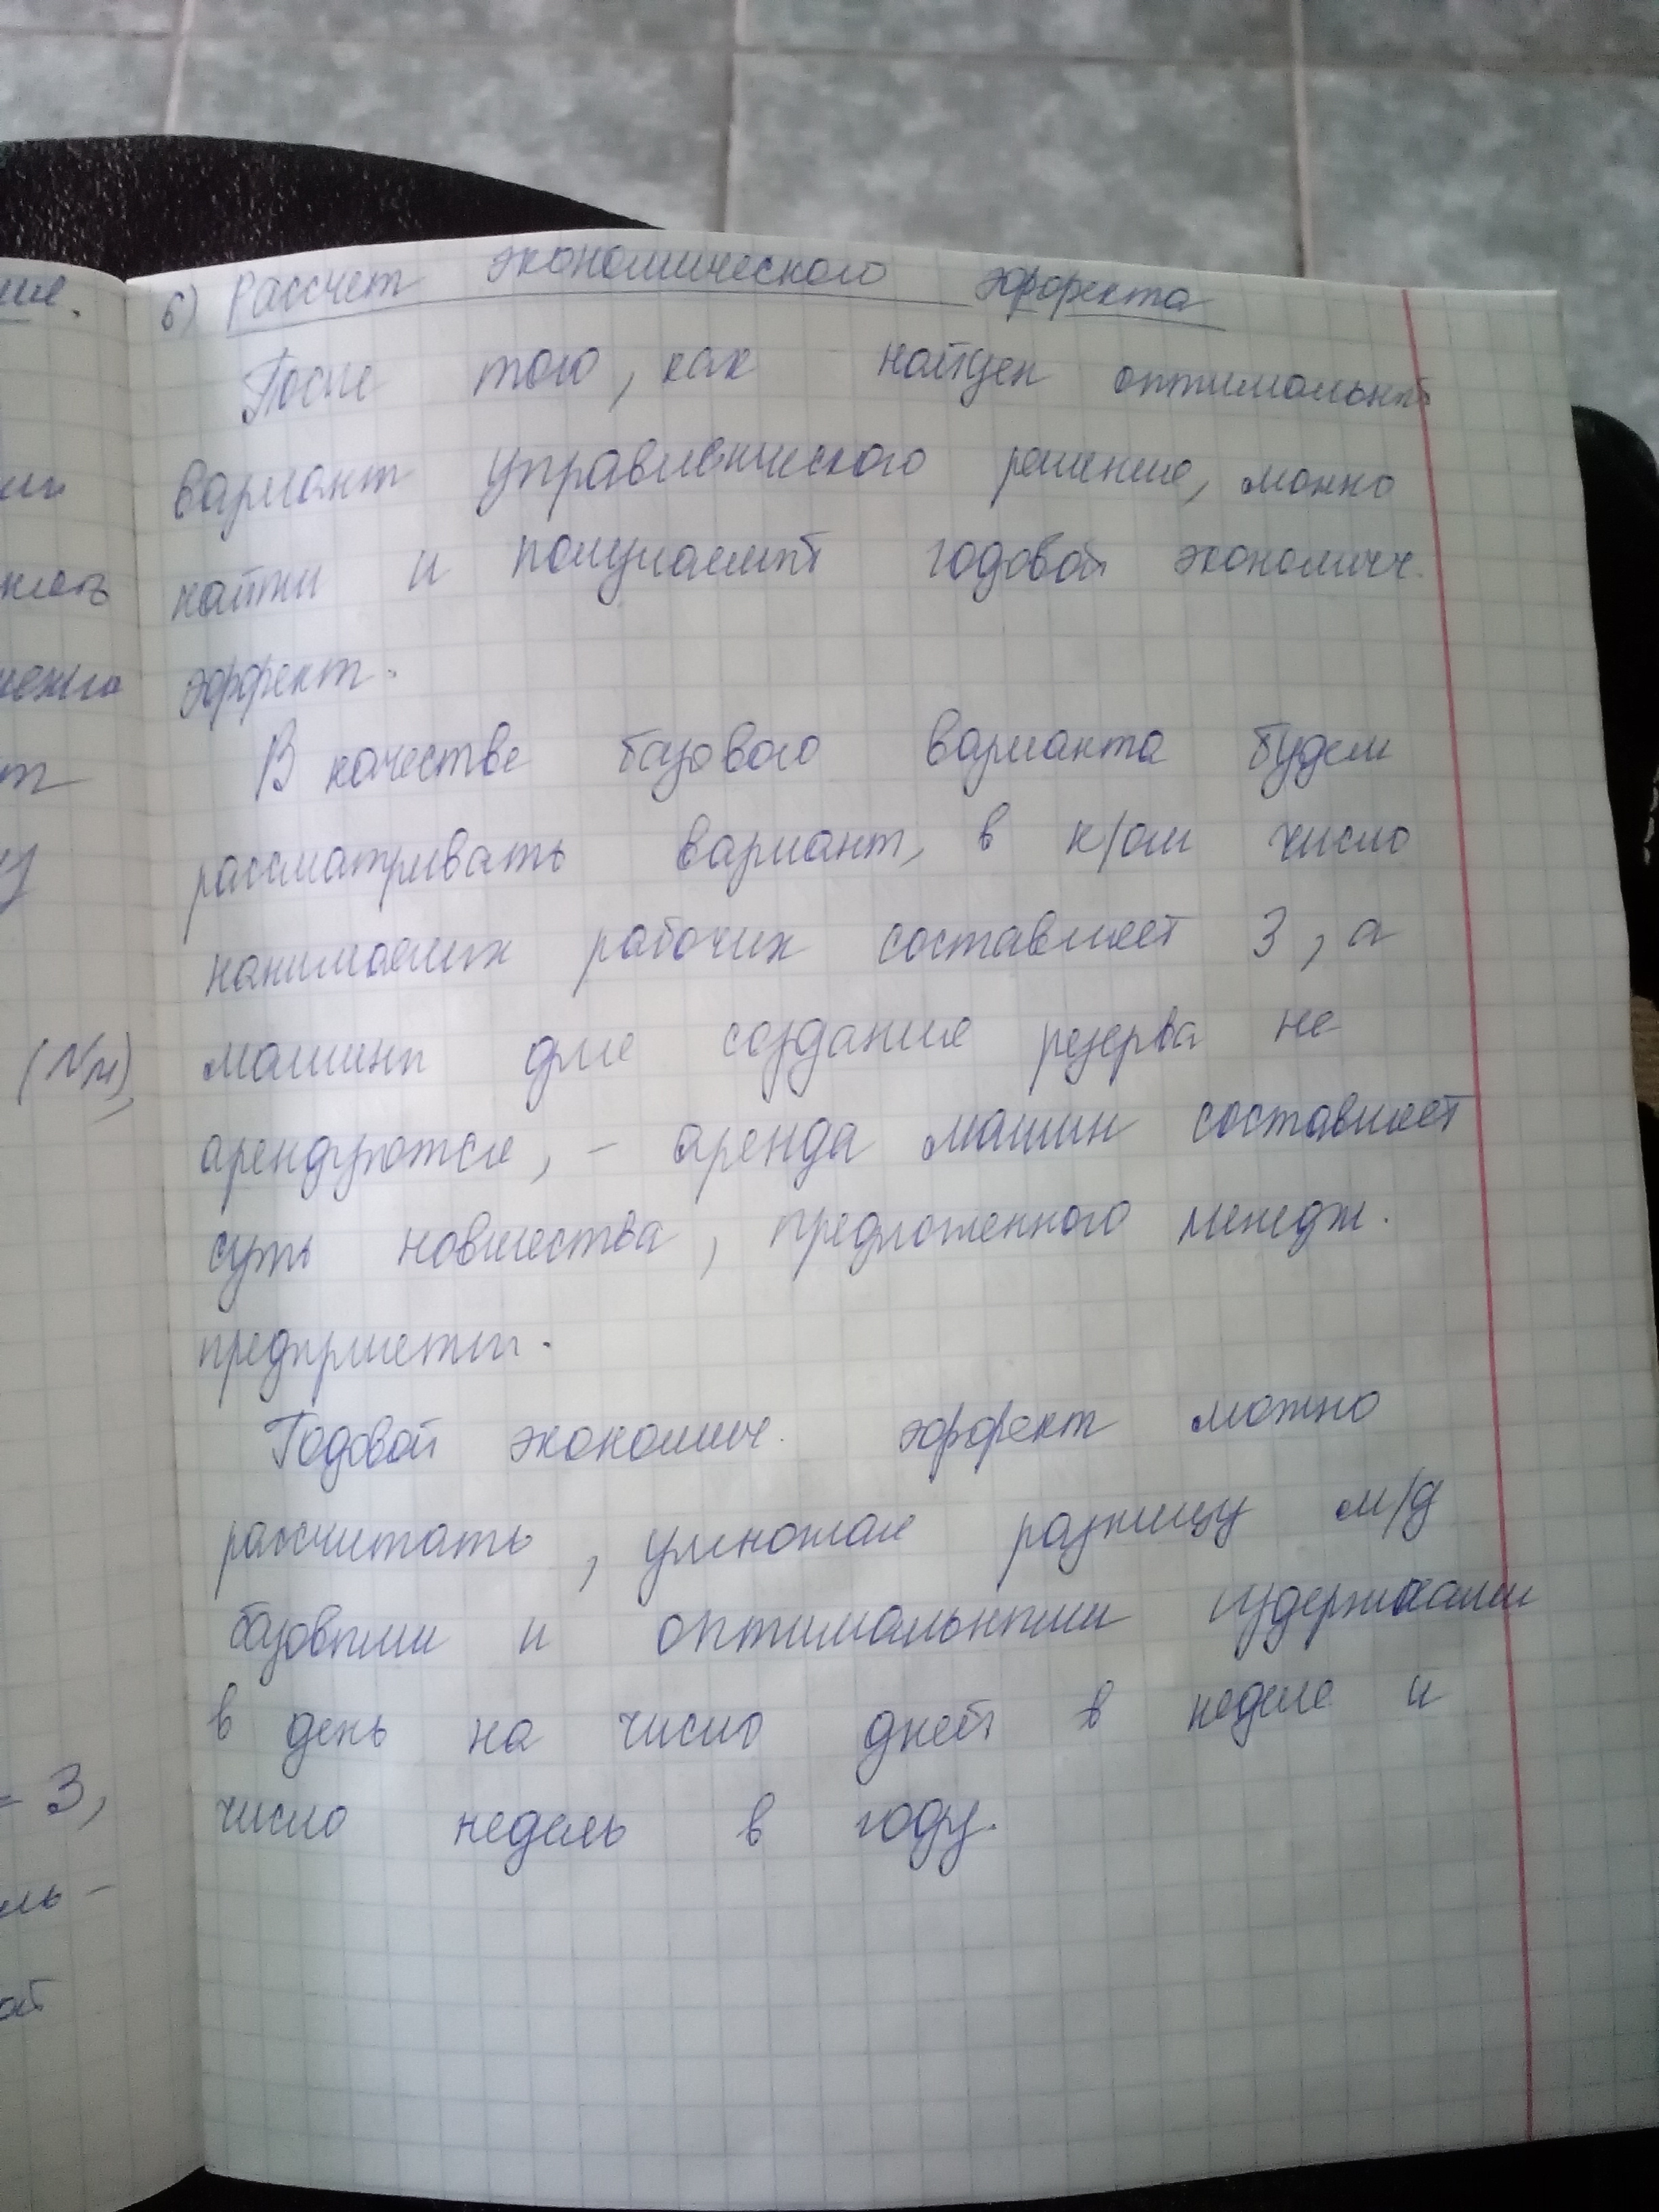 6) Рассчет экономического эффекта
После того, как найден оптимальный
вариант управленческого решения, можно
найти и получаемый годовой экономич.
эффект.
В качестве базового варианта будем
рассматривать вариант, в к/ом число
нанимаемых рабочих составляет 3, а
машины для создания резерва не
арендуются, - аренда машин составляет
суть новшества, предложенного менедж.
предприятия.
Годовой экономич. эффект можно
рассчитать, умножая разницу м/д
базовыми и оптимальными издержками
в день на число дней в неделе и
число недель в году.
(Nм),
= 3,